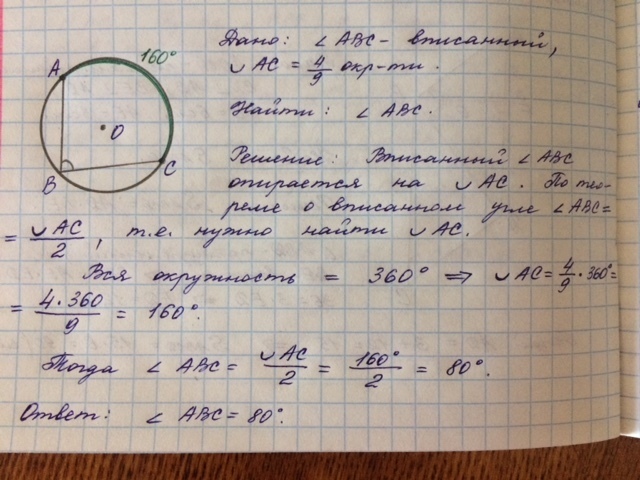 160°
A
O
B
C
Дано: ∠ABC - вписанный,
◡AC = 4/9 окр-ти.
Найти: ∠ABC.
Решение: Вписанный ∠ABC
опирается на ◡AC. По тео-
реме о вписанном угле ∠ABC=
= ◡AC/2, т.е. нужно найти ◡AC.
Вся окружность = 360° ⇒ ◡AC = 4/9 · 360° =
= 4·360/9 = 160°.
Тогда ∠ABC = ◡AC/2 = 160°/2 = 80°.
Ответ: ∠ABC = 80°.